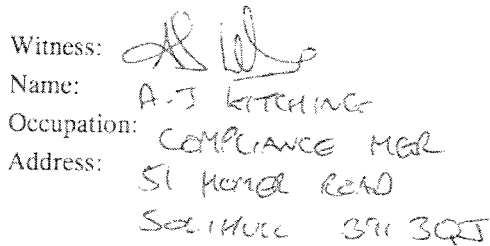 Witness:
Name: A.J KITCHING
Occupation: COMPLIANCE MGR
Address: 51 HOMER ROAD
SOLIHULL B91 3QJ